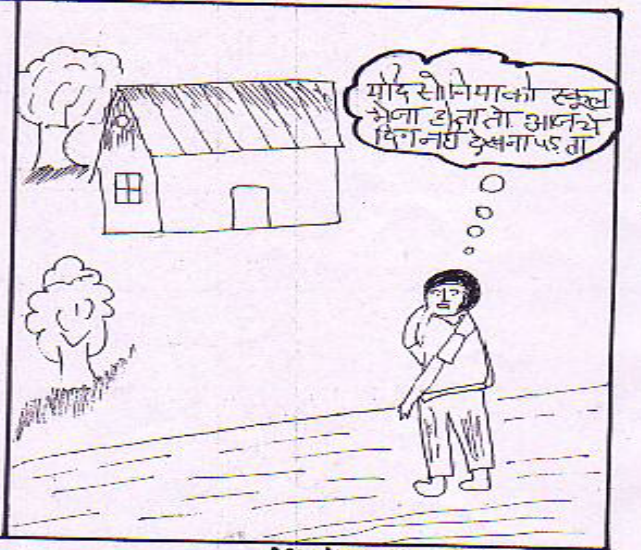 यदि सोनिया को स्कूल
भेजा होता तो आज ये
दिन नहीं देखना पड़ता